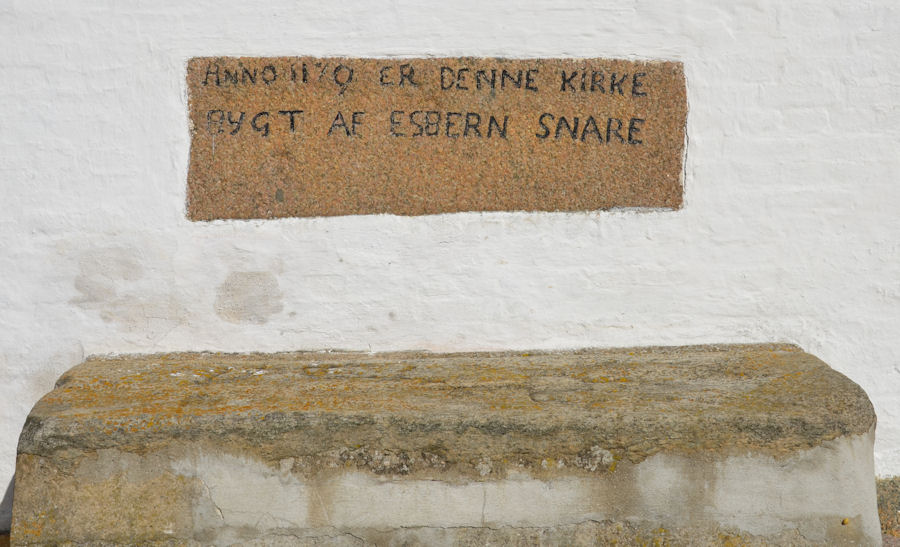 ANNO 1170 ER DENNE KIRKE
BYGT AF ESBERN SNARE